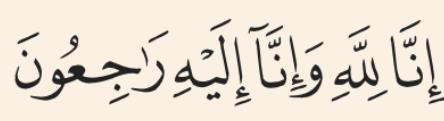 إِنَّا لِلَّٰهِ وَإِنَّآ إِلَيْهِ رَٰجِعُونَ